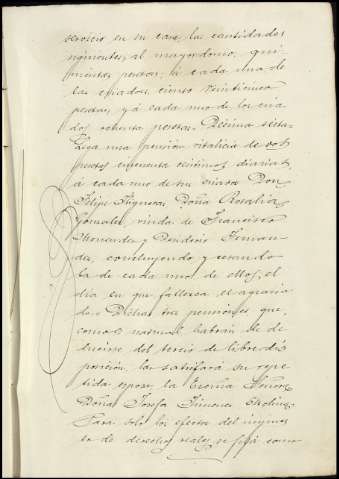 servicio en su casa, las cantidades
siguientes, al mayordomo, qui-
nientas pesetas; a cada una de
las criadas, ciento veinticinco
pesetas, y á cada uno de los cria
dos ochenta pesetas. Décima sexta-
Lega una pensión vitalicia de dos
pesetas cincuenta céntimos diarias,
á cada uno de Don
Felipe Figueras Doña Rosalia
Gonzalez, viuda de Francisco
Menendez y Desiderio Fernan-
dez, concluyendo y cesando
la de cada uno de ellos, el
día en que fallezca el agracia
do. Dichas tres pensiones que,
como es natural habrán de de
ducirse del tercio de libre dis
posición, las satisfará su repe
tida esposa, la Excma Señora
Doña Josefa Jimenez Molina
Para solo los efectos del impues
to de derechos reales, se fija como